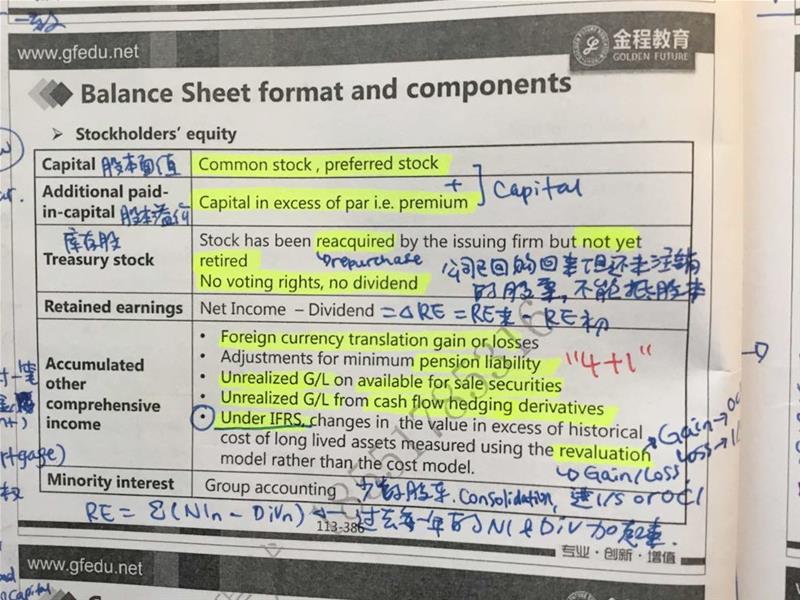 www.gfedu.net
金程教育
GOLDEN FUTURE
Balance Sheet format and components
➢ Stockholders' equity
Capital 股本面值 Common stock , preferred stock
Additional paid-in-capital 股本溢价 Capital in excess of par i.e. premium + ] Capital
库存股
Treasury stock
Stock has been reacquired by the issuing firm but not yet
retired repurchase 公司已回购回来但还未注销
No voting rights, no dividend 的股票,不能抵股本
Retained earnings Net Income – Dividend = △RE = RE末 - RE初
Accumulated
other
comprehensive
income
• Foreign currency translation gain or losses
• Adjustments for minimum pension liability "4+1"
• Unrealized G/L on available for sale securities
• Unrealized G/L from cash flow hedging derivatives
• Under IFRS, changes in the value in excess of historical
cost of long lived assets measured using the revaluation
model rather than the cost model.
Gain→
Loss→
Gain/Loss
Minority interest Group accounting 少数股东. Consolidation, 进I/S or OCI
RE = Σ(NIn - Divn) ← 过去每一年的NI & Div加起来.
113-386
专业·创新·增值
18551785316
www.gfedu.net
Capital